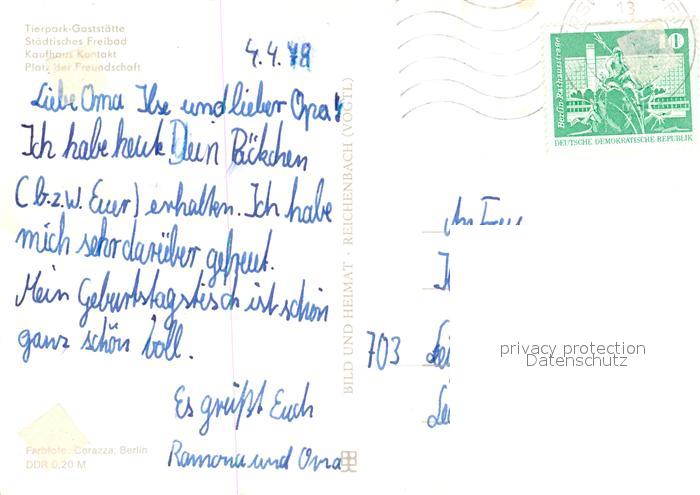 Tierpark-Gaststätte
Städtisches Freibad
Kaufhaus Kontakt
Platz der Freundschaft
4.4.78
Liebe Oma Ilse und lieber Opa!
Ich habe heute Dein Päckchen
(b.z.w. Euer) erhalten. Ich habe
mich sehr darüber gefreut.
Mein Geburtstagstisch ist schon
ganz schön voll.
Es grüßt Euch
Ramona und Oma
Farbfoto: Corazza, Berlin
DDR 0,20 M
BILD UND HEIMAT · REICHENBACH (VOGTL)
13
Berlin-Rathausstraße
10
DEUTSCHE DEMOKRATISCHE REPUBLIK
703
privacy protection
Datenschutz